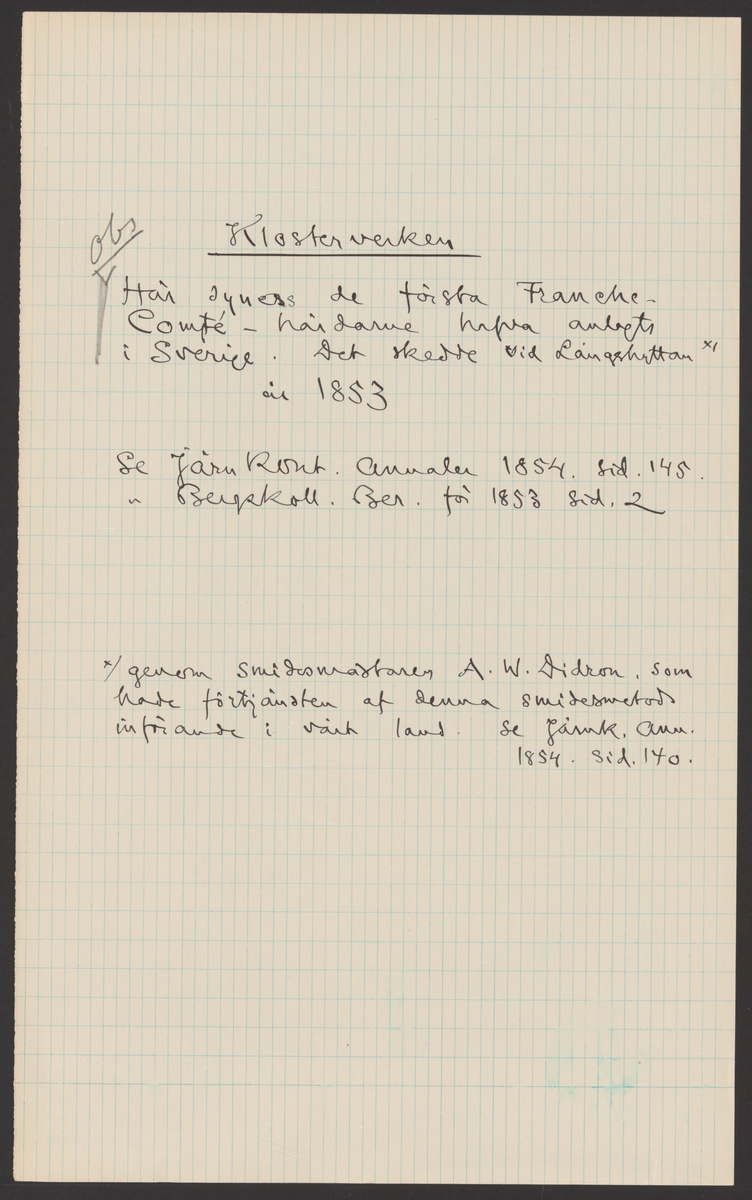 obs
Klosterverken
Här synes de första Franche-
Comté-härdarne hafva anlagts
i Sverige. Det skedde vid Långshyttan x/
år 1853
Se Järn Kont. Annaler 1854. Sid. 145.
" Bergskoll. Ber. för 1853 Sid. 2
x/ genom smidesmästaren A. W. Didron, som
hade förtjänsten af denna smidesmetods
införande i vårt land. Se Järnk. Ann.
1854. Sid. 140.